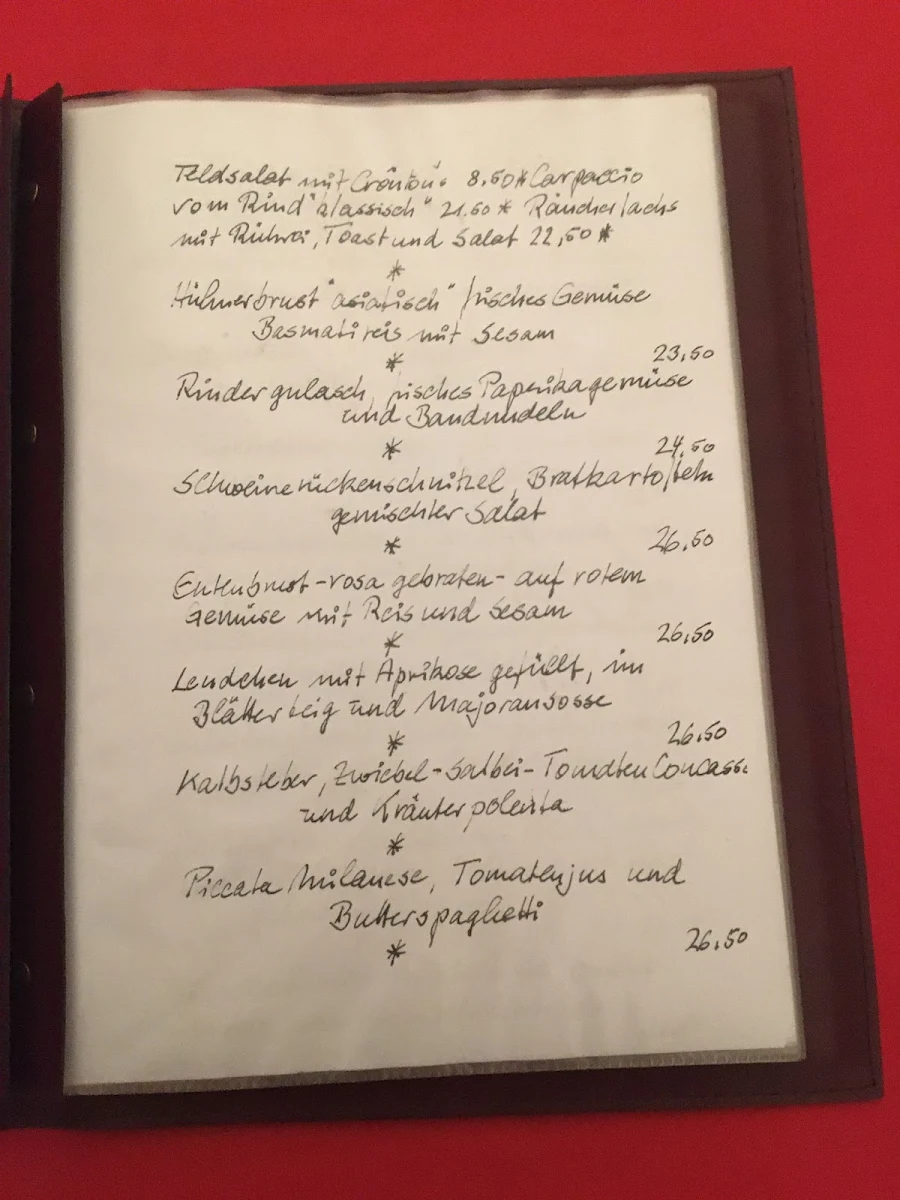 Feldsalat mit Croûtons 8,50 * Carpaccio
vom Rind "classisch" 21.50 * Räucherlachs
mit Rührei, Toast und Salat 22,50 *
*
Hühnerbrust "asiatisch" frisches Gemüse
Basmatireis mit Sesam
* 23,50
Rindergulasch, frisches Paprikagemüse
und Bandnudeln
* 24,50
Schweinerückenschnitzel, Bratkartoffeln
gemischter Salat
* 26,50
Entenbrust - rosa gebraten - auf rotem
Gemüse mit Reis und Sesam
* 26,50
Lendchen mit Aprikose gefüllt, im
Blätterteig und Majoransosse
* 26,50
Kalbsleber, Zwiebel-Salbei-Tomaten Concassé
und Kräuterpolenta
*
Piccata Milanese, Tomatenjus und
Butterspaghetti
* 26,50